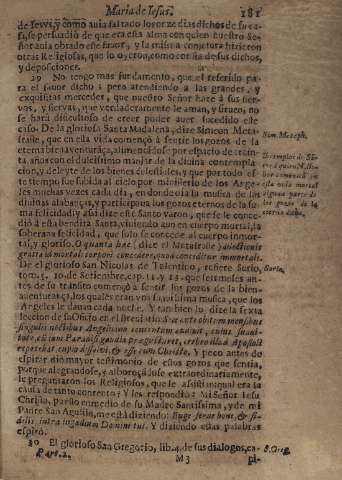 Maria de Iesus. 181
de Iesus, y como auia faltado los treze dias dichos de su ca-
sa, se persuadiò de que era esta alma con quien nuestro Se-
ñor auia obrado este fauor, y la misma conjetura hizieron
otras Religiosas, que lo oyeron, como consta de sus dichos,
y deposiciones.
29 No tengo mas fundamento, que el referido pa-
ra el fauor dicho; pero atendiendo a las grandes, y
exquisitas mercedes, que nuestro Señor haze à sus sier-
vos, y siervas, que verdaderamente le aman, y siruen, no
se harà dificultoso de creer poder auer sucedido este
caso. De la gloriosa Santa Madalena, dize Simeon Meta-
fraste, que en esta vida començò à sentir los gozos de la
eterna bienaventurança, alimentada por espacio de trein-
ta años con el dulcissimo manjar de la divina contempla-
cion, y deleyte de los bienes celestiales, y que por todo es-
te tiempo fue subida al cielo por ministerio de los Ange-
les muchas vezes cada dia, en donde oìa la musica de las
divinas alabanças, y participaua los gozos eternos de la su-
ma felicidad; y assi dize este Santo varon, que se le conce-
diò à esta bendita Santa, viuiendo aun en cuerpo mortal, la
soberana felicidad, que solo se concede al cuerpo inmor-
tal, y glorioso. O quanta hæc (dize el Metafraste) dilectionis
gratia ad mortali corpori concedere, quod conceditur immortali.
De el glorioso San Nicolas de Tolentino, refiere Surio,
tom. 5. 10. de Setiembre, cap. 12. y 13. que seis meses an-
tes de su transito començò à sentir los gozos de la bien-
aventurança, los quales eran vna suavissima musica, que los
Angeles le dauan cada noche. Y tambien lo dize la sexta
leccion de su Oficio en el Breviario: Sex ante obitum mensibus
singulis noctibus Angelicum concentum audiuit, cuius suaui-
tate, cùm iam Paradisi gaudia prægustaret, crebro illud Apostoli
repetebat: cupio dissolui, & esse cum Christo. Y poco antes de
espirar diò mayor testimonio de estos gozos que sentia,
porque alegrandose, y alboroçandose extraordinariamente,
le preguntaron los Religiosos, que le assistian, qual era la
causa de tanto contento? Y les respondiò: Mi Señor Iesu
Christo, puesto en medio de su Madre Santissima, y de mi
Padre San Agustin, me està diziendo: Euge serue bone, & fi-
delis intra in gaudium Domini tui. Y diziendo estas palabras
espirò.
30 El glorioso San Gregorio, lib. 4. de sus dialogos, ca-
Part. 2. M 3 pi-
Sim. Metaph.
Exemplos de Sã-
Surio.
S. Greg.